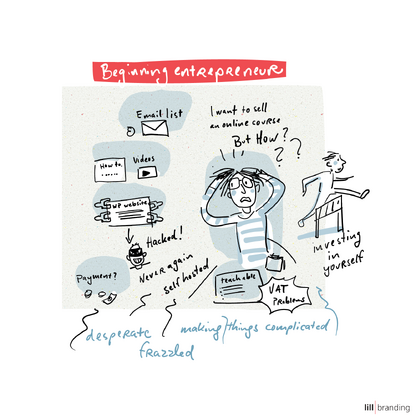 Beginning entrepreneur
Email list
I want to sell
an online course
But How?
? ?
How to..
Videos
WP website
Hacked!
Never again
self hosted
Payment?
teachable
VAT
Problems
investing
in
yourself
desperate
frazzled
making things complicated
lill branding